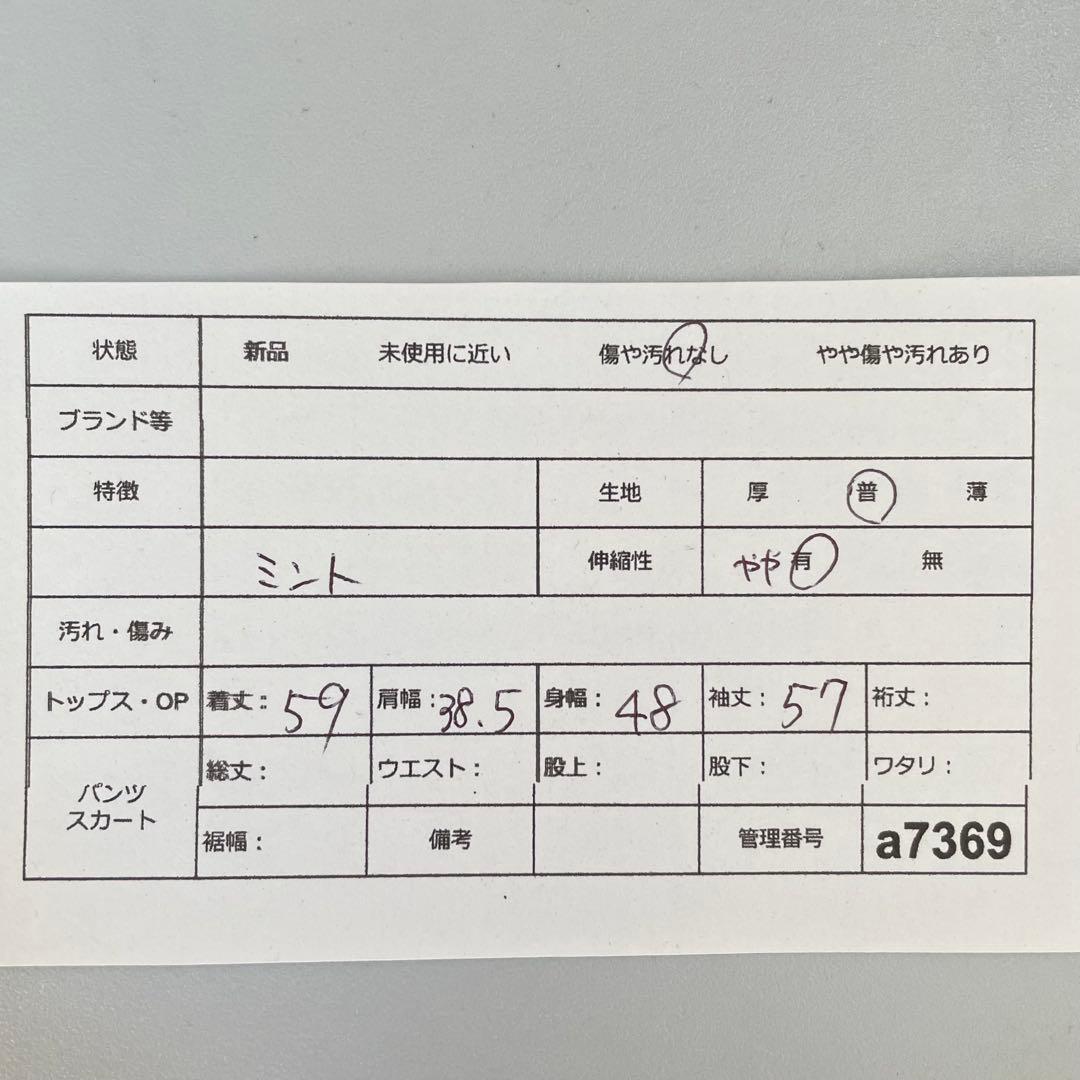 状態 新品 未使用に近い 傷や汚れなし やや傷や汚れあり
ブランド等
特徴 生地 厚 普 薄
ミント 伸縮性 やや有 無
汚れ・傷み
トップス・OP 着丈：59 肩幅：38.5 身幅：48 袖丈：57 裄丈：
パンツ
スカート
総丈： ウエスト： 股上： 股下： ワタリ：
裾幅： 備考 管理番号 a7369